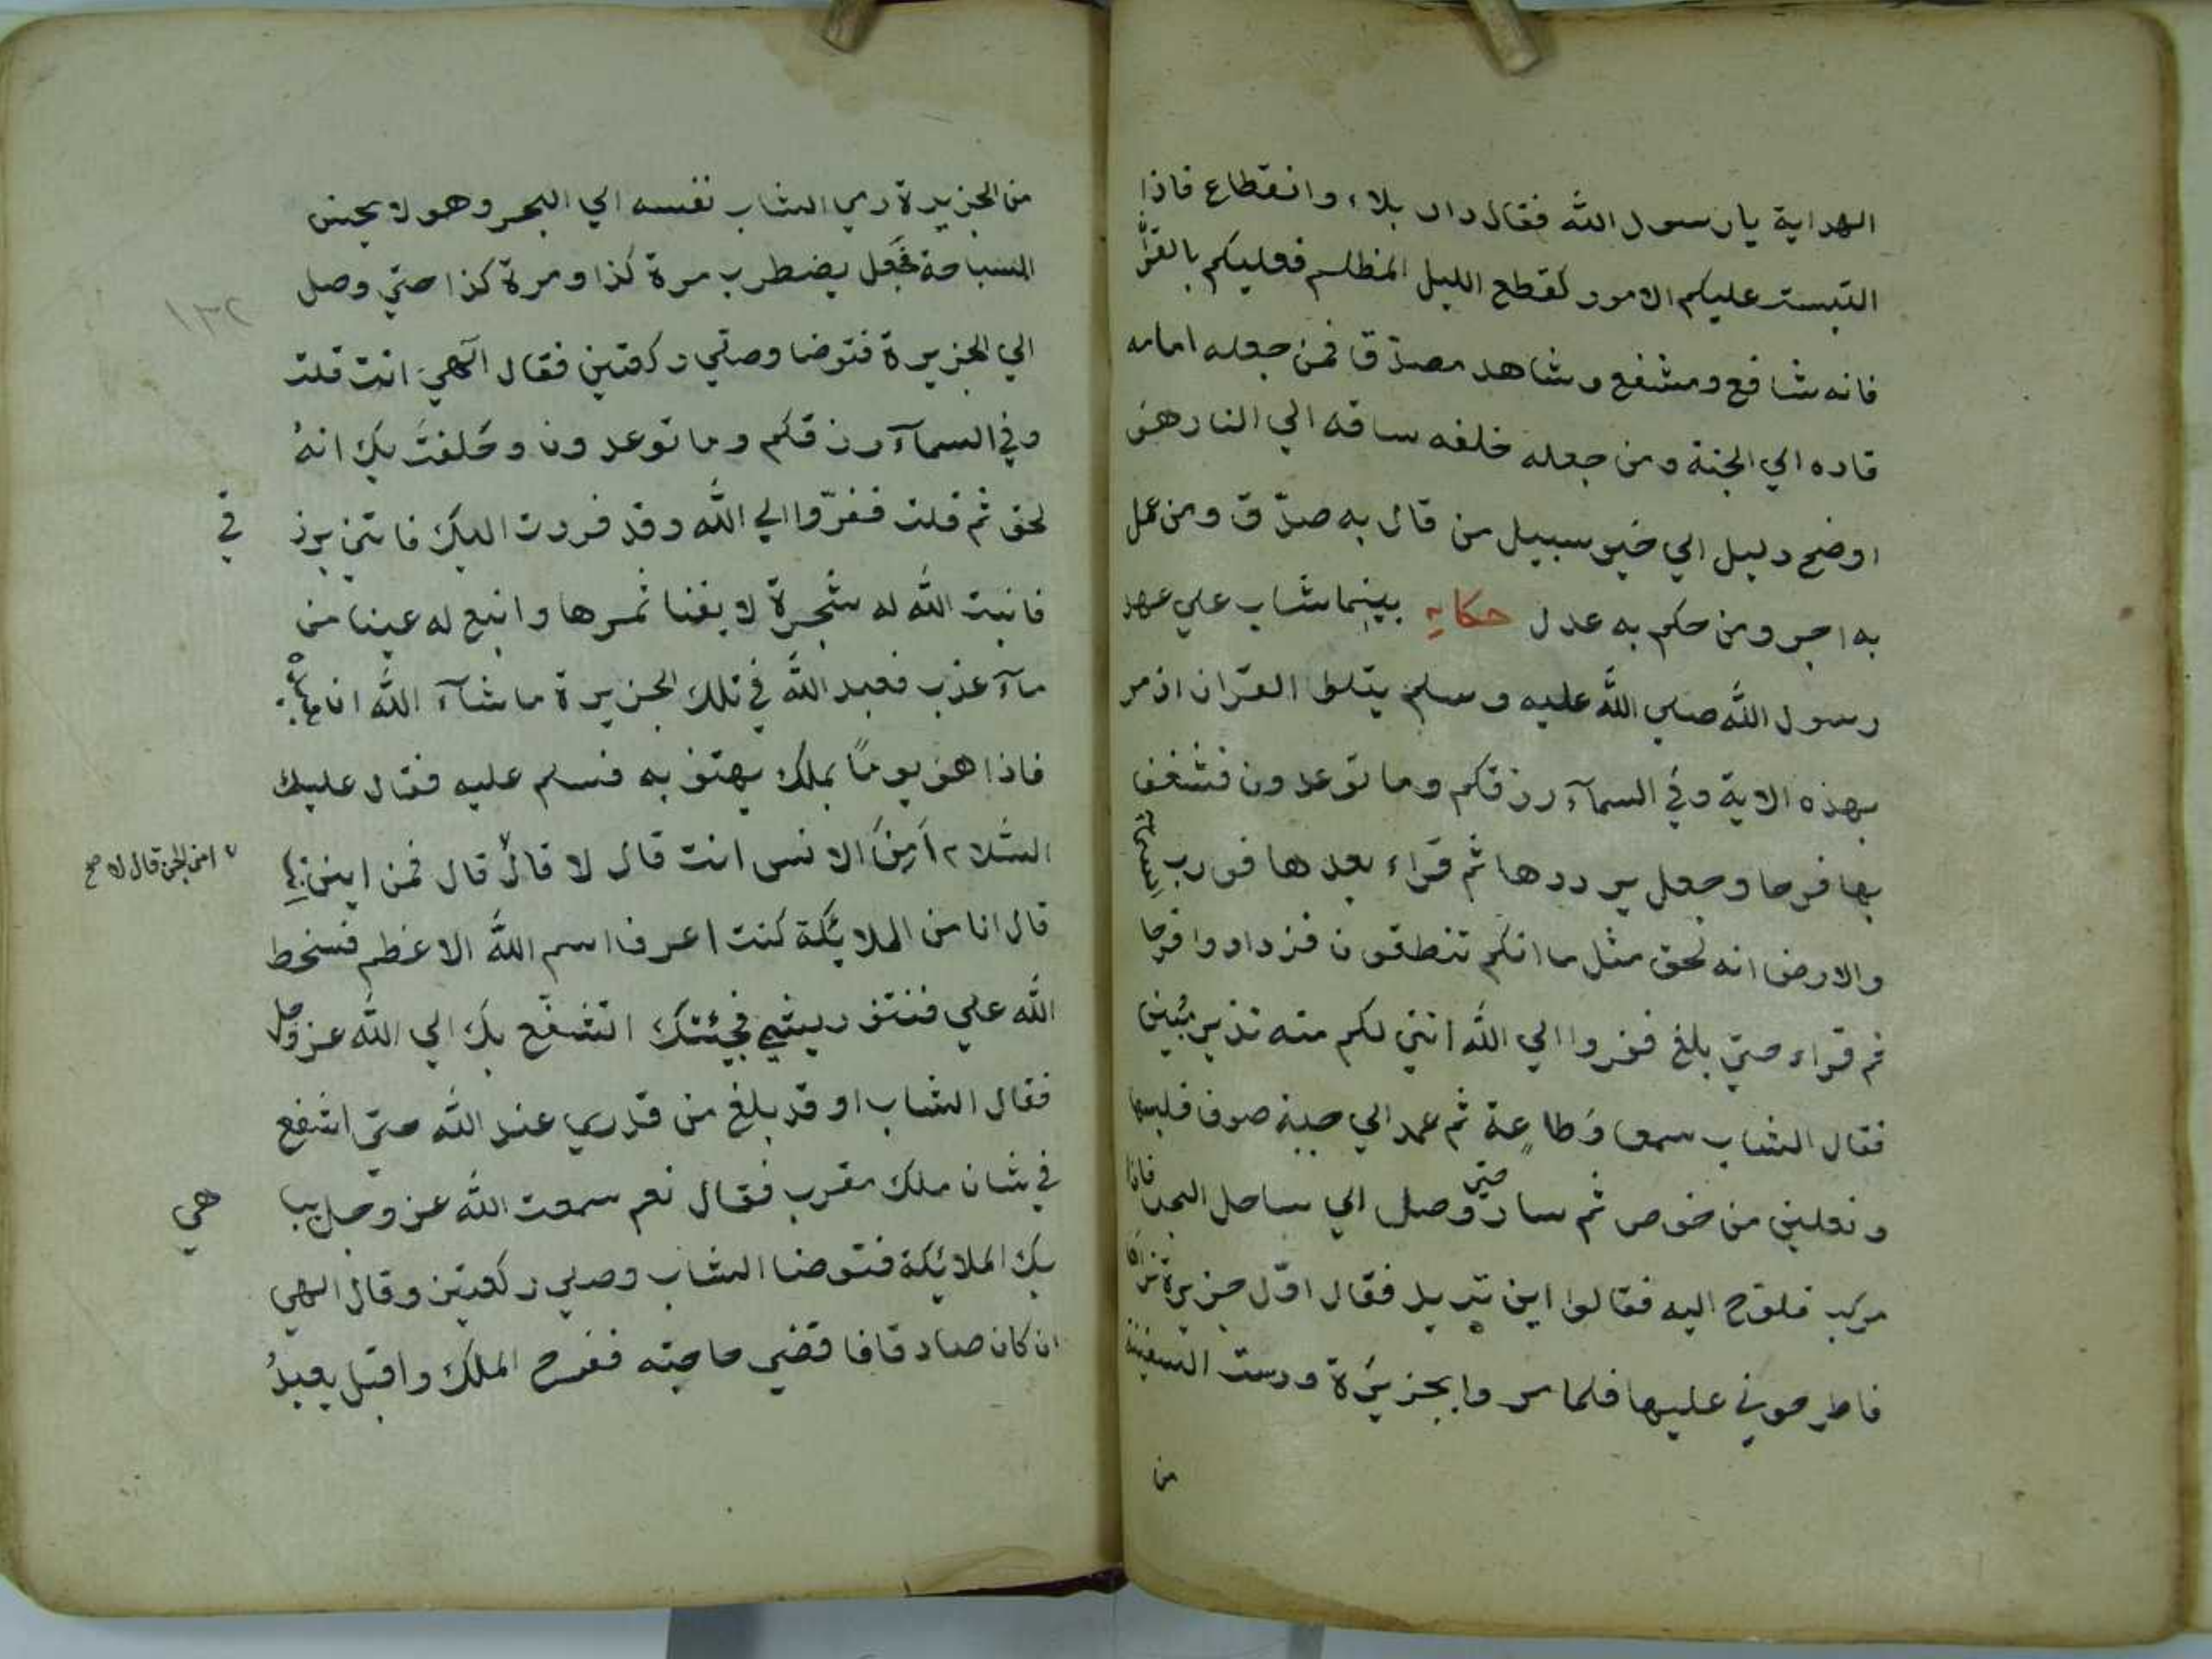 الهداية يارسول الله فقال دار بلاء وانقطاع فاذا
التبست عليكم الامور كقطع الليل المظلم فعليكم بالقرآن
فانه شافع ومشفع وشاهد مصدّق فمن جعله امامه
قاده الي الجنة ومن جعله خلفه ساقه الي النار هو
اوضح دليل الي خير سبيل من قال به صدّق ومن عمل
به اجر ومن حكم به عدل حكاية بينما شاب علي عهد
رسول الله صلي الله عليه وسلم يتلوا القرآن اذ مر
بهذه الاية وفي السمآء رزقكم وما توعدون فشغف
بها فرحا وجعل يرددها ثم قراء بعدها فورب السماء
والارض انه لحق مثل ما انكم تنطقون فزداد وا فرحا
ثم قراء حتي بلغ ففروا الي الله انني لكم منه نذير مبين
فقال الشاب سمعا وطاعة ثم عمد الي جبة صوف فلبسها
ونعلين من خوص ثم سار حتي وصل الي ساحل البحر فاذا
مركب فلوح اليه فقالوا اين تريد فقال اوّل جزيرة
فاطرحوني عليها فلما مروا بجزيرة ورست السفينة
من
من الجزيرة رمي الشاب نفسه الي البحر وهو لا يحسن
السباحة فجعل يضطرب مرة كذا ومرة كذا حتي وصل
١٣٢
الي الجزيرة فتوضا وصلي ركعتين فقال الهي انت قلت
وفي السمآء رزقكم وما توعدون وحلفت بك انه
لحق ثم قلت ففرّوا الي الله وقد فررت اليك فاتني برز
في
فانبت الله له شجرة لا يفنا ثمرها وانبع له عينا من
مآء عذب فعبد الله في تلك الجزيرة ما شآء الله ان
فاذا هو يومًا بملك يهتف به فسلم عليه فقال عليك
السّلام اَمِنَ الانس انت قال لا قال قال فمن اين
٧ امن الجن قال لا صح
قال انا من الملائكة كنت اعرف اسم الله الاعظم فسخط
الله علي فنتف ريشي فجئتك اتشفّع بك الي الله عز وجل
فقال الشاب او قد بلغ من قدري عند الله حتي اشفع
في شان ملك مقرب فقال نعم سمعت الله عز وجل يبا
هي
بك الملائكة فتوضا الشاب وصلي ركعتين وقال الهي
ان كان صادقا فاقضي حاجته ففرح الملك واقبل يعبدُ